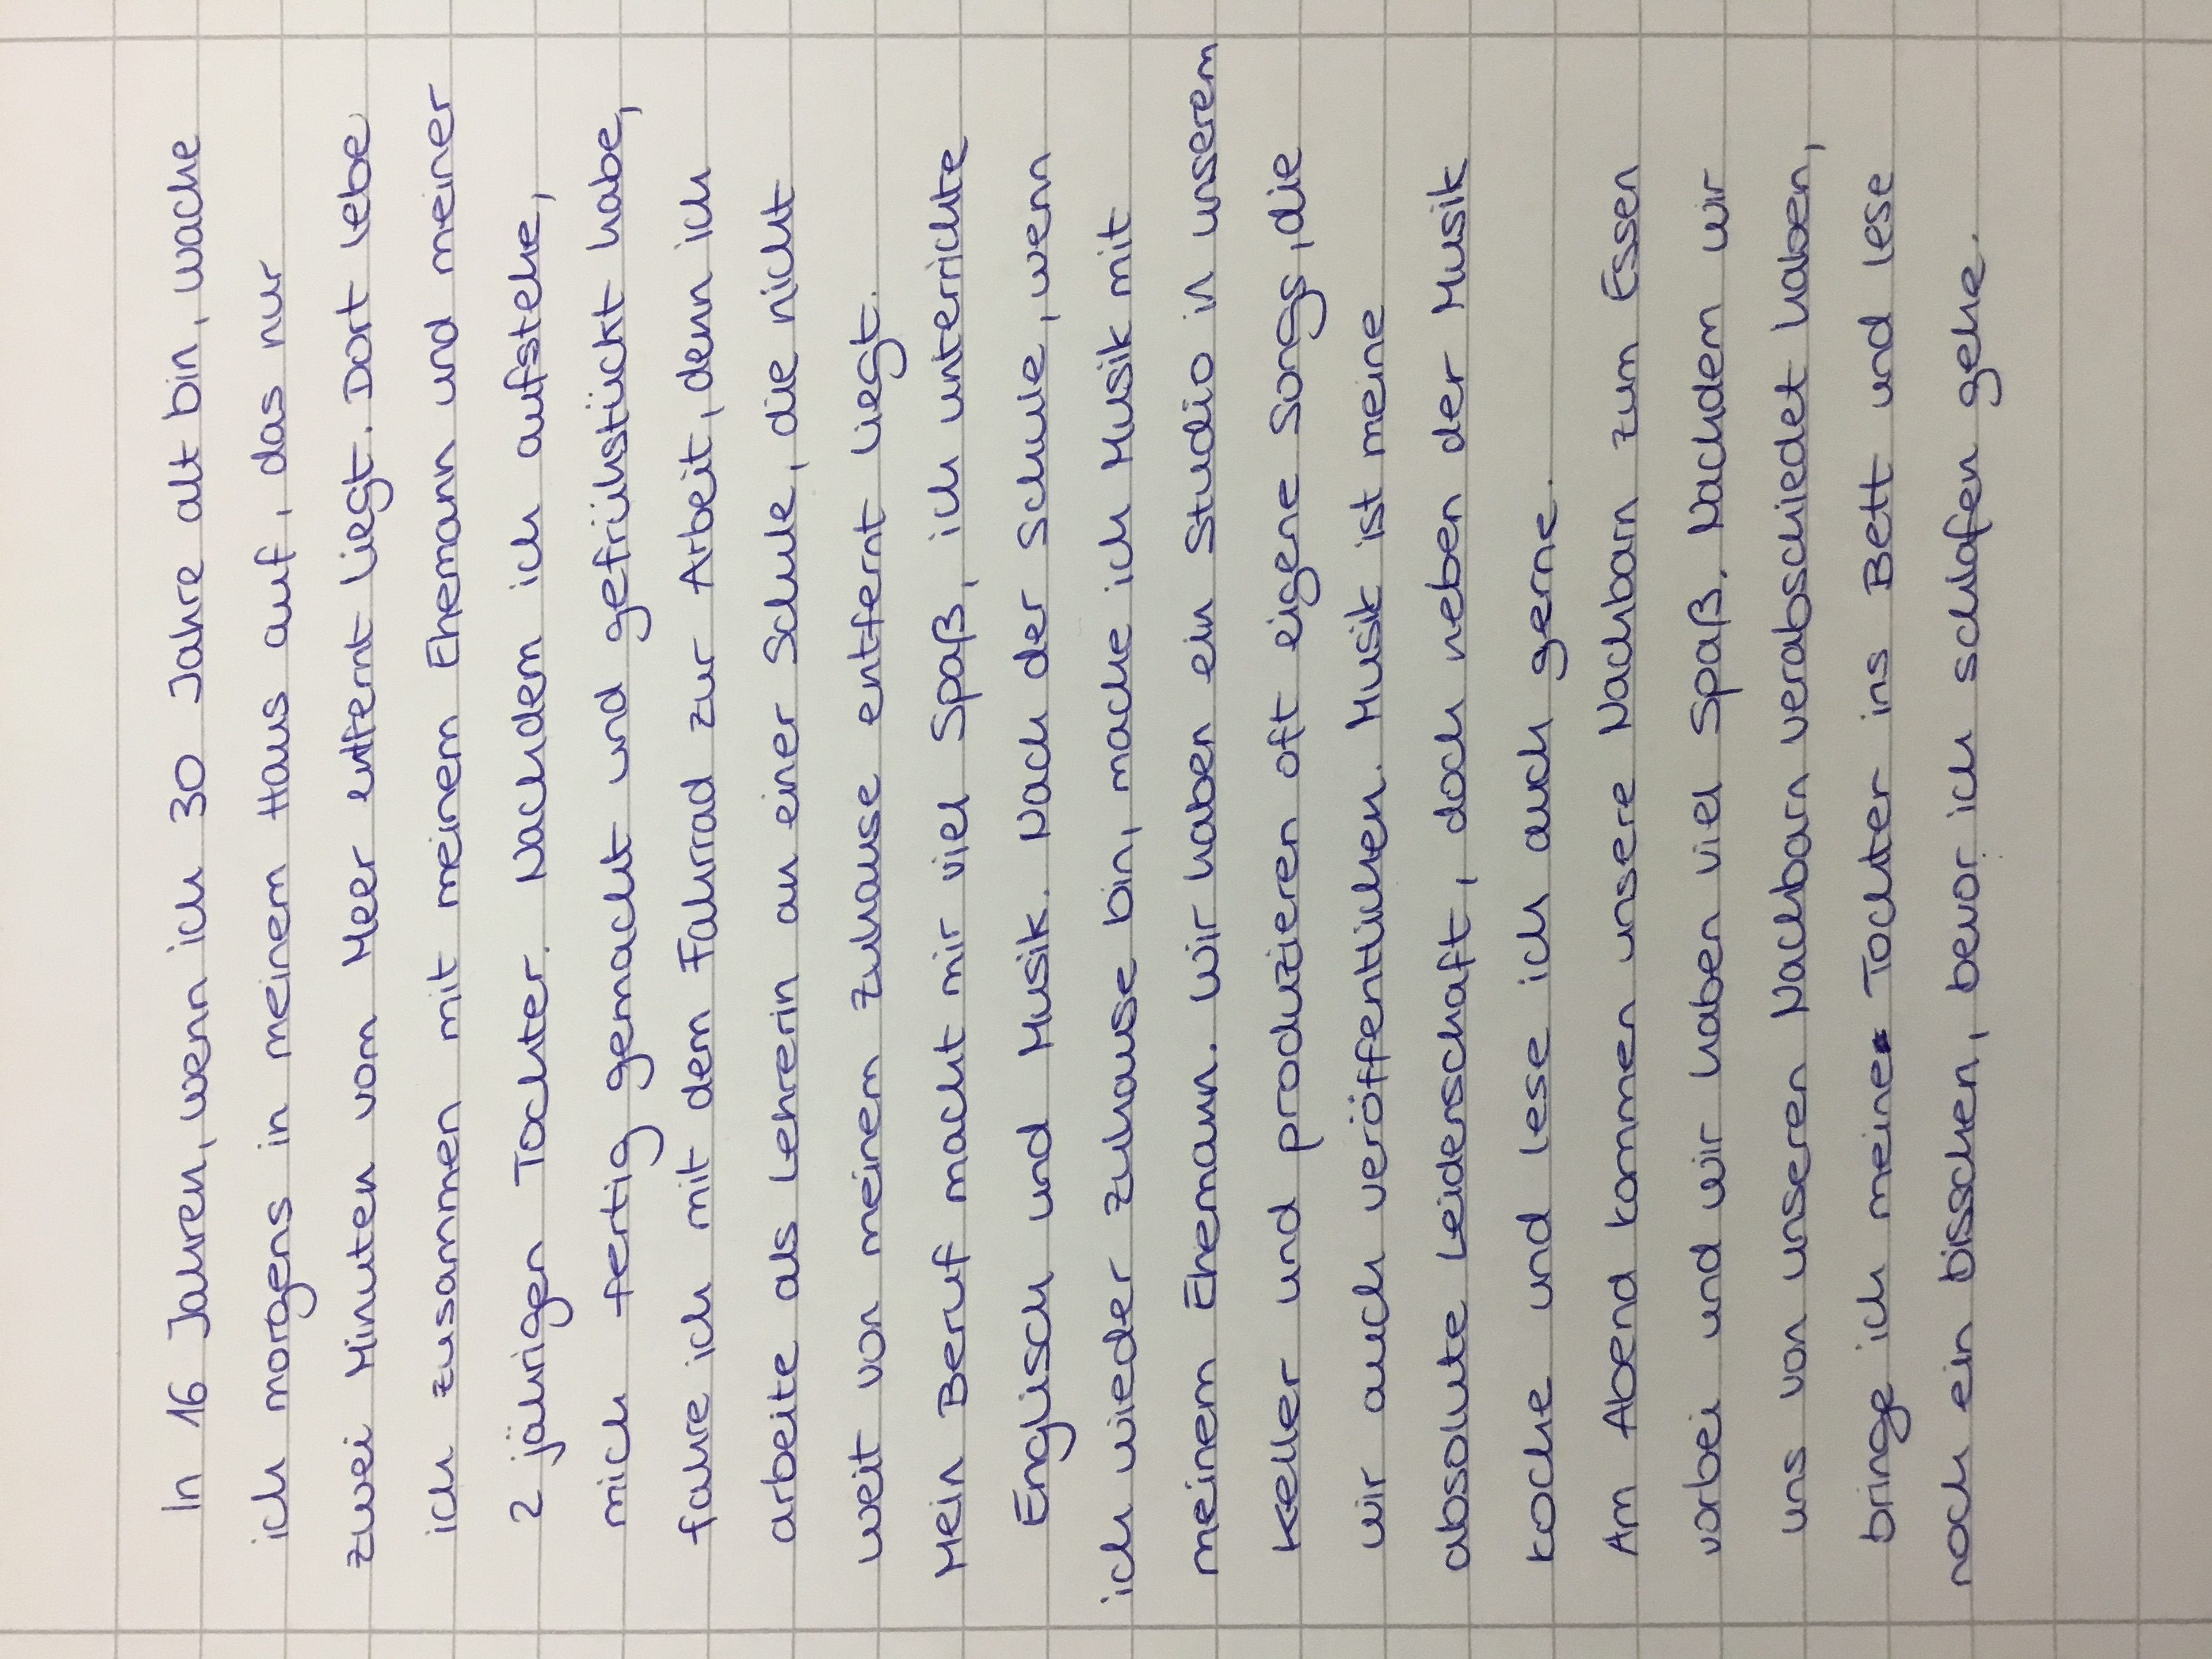 In 16 Jahren, wenn ich 30 Jahre alt bin, wache
ich morgens in meinem Haus auf, das nur
zwei Minuten vom Meer entfernt liegt. Dort lebe
ich zusammen mit meinem Ehemann und meiner
2 jährigen Tochter. Nachdem ich aufstehe,
mich fertig gemacht und gefrühstückt habe,
fahre ich mit dem Fahrrad zur Arbeit, denn ich
arbeite als Lehrerin an einer Schule, die nicht
weit von meinem zuhause entfernt liegt.
Mein Beruf macht mir viel Spaß, ich unterrichte
Englisch und Musik. Nach der Schule, wenn
ich wieder zuhause bin, mache ich Musik mit
meinem Ehemann. Wir haben ein Studio in unserem
Keller und produzieren oft eigene Songs, die
wir auch veröffentlichen. Musik ist meine
absolute Leidenschaft, doch neben der Musik
koche und lese ich auch gerne.
Am Abend kommen unsere Nachbarn zum Essen
vorbei und wir haben viel Spaß. Nachdem wir
uns von unseren Nachbarn verabschiedet haben,
bringe ich meine Tochter ins Bett und lese
noch ein bisschen, bevor ich schlafen gehe.